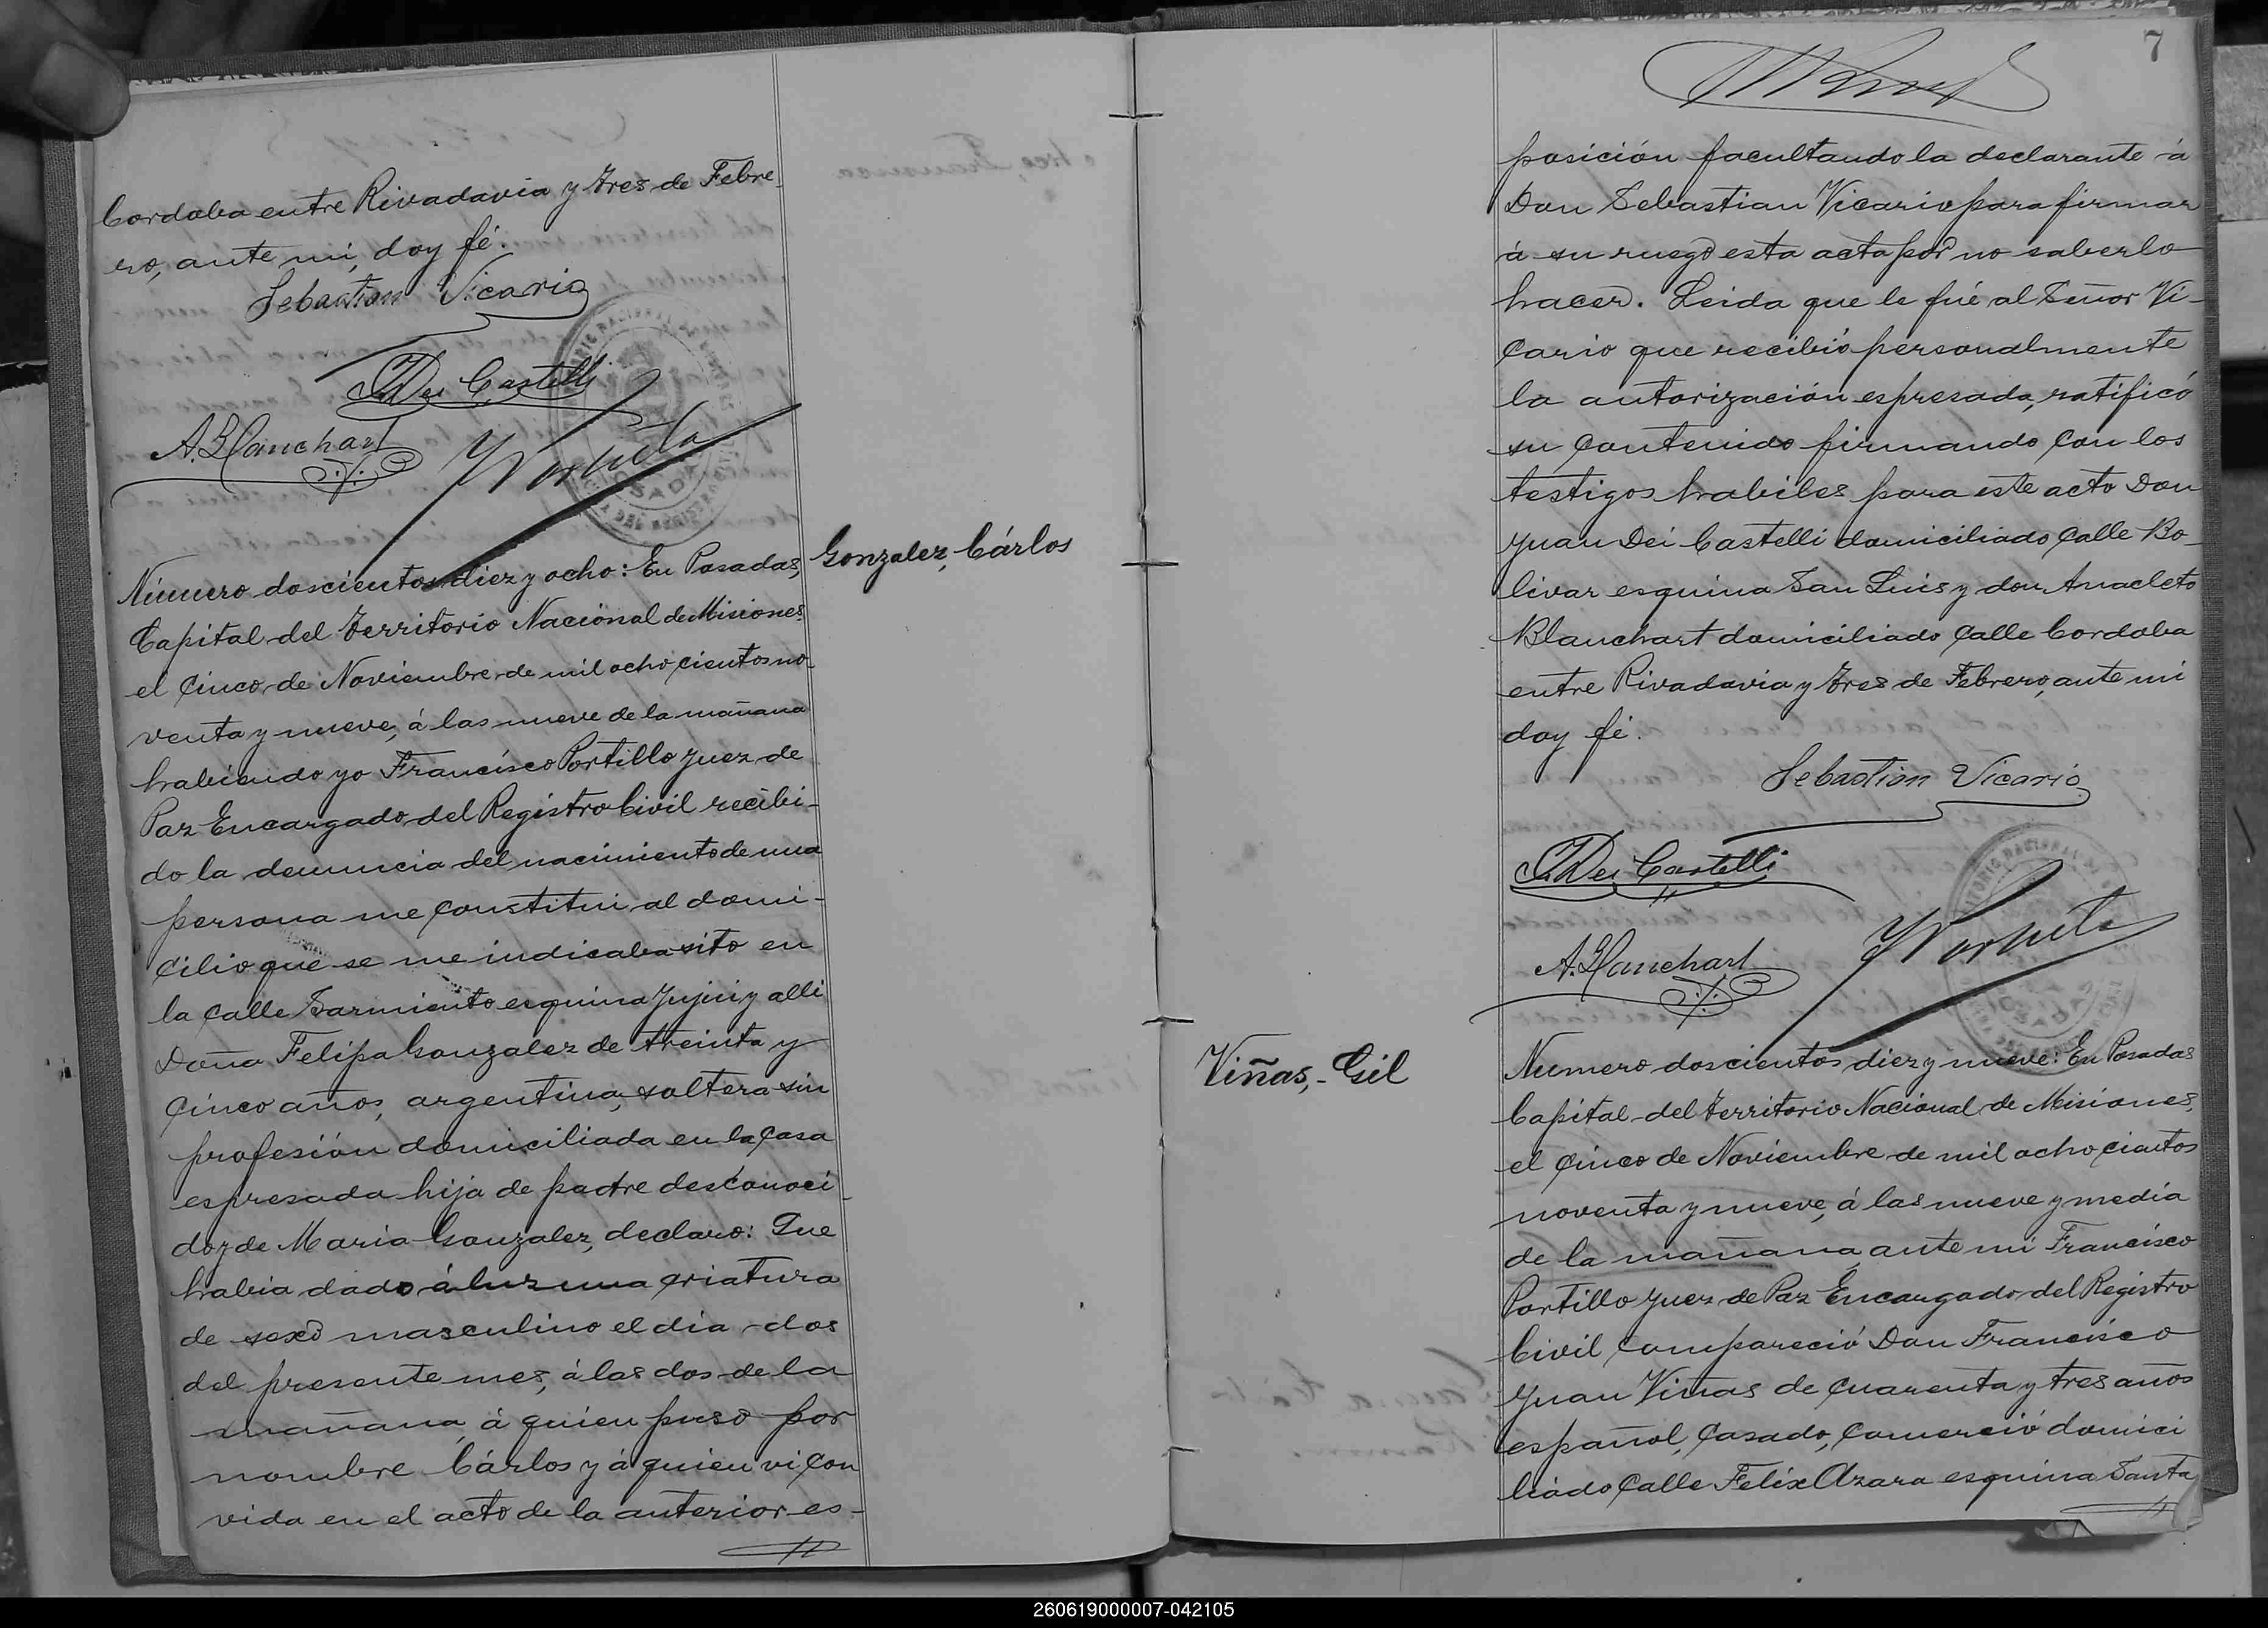 Cordoba entre Rivadavia y Tres de Febre-
ro, ante mi, doy fé.
Sebastian Vicario
J. Dei Castelli
A. Blanchart
Número doscientos diez y ocho: En Posadas,
Gonzalez, Cárlos
Capital del Territorio Nacional de Misiones,
el cinco de Noviembre de mil ochocientos no-
venta y nueve, á las nueve de la mañana
habiendo yo Francisco Portillo Juez de
Paz Encargado del Registro Civil recibi-
do la denuncia del nacimiento de una
persona me constitui al domi-
cilio que se me indicaba sito en
la calle Sarmiento esquina Jujui y alli
Doña Felipa Gonzalez de treinta y
cinco años, argentina, soltera sin
profesión domiciliada en la casa
espresada hija de padre desconoci-
do y de Maria Gonzalez, declaro: Que
habia dado á luz una criatura
de sexo masculino el dia dos
del presente mes, á las dos de la
mañana, á quien puso por
nombre Cárlos y á quien vi con
vida en el acto de la anterior es-
7
posición facultando la declarante á
Don Sebastian Vicario para firmar
á su ruego esta acta por no saberlo
hacer. Leida que le fué al Señor Vi-
cario que recibió personalmente
la autorización espresada, ratificó
su contenido firmando con los
testigos habiles para este acto Don
Juan Dei Castelli domiciliado calle Bo-
livar esquina San Luis y don Anacleto
Blanchart domiciliado calle Cordoba
entre Rivadavia y Tres de Febrero, ante mi
doy fé.
Sebastian Vicario
J. Dei Castelli
A. Blanchart
Viñas, - Gil
Numero doscientos diez y nueve: En Posadas
Capital del Territorio Nacional de Misiones,
el cinco de Noviembre de mil ochocientos
noventa y nueve, á las nueve y media
de la mañana, ante mi Francisco
Portillo Juez de Paz Encargado del Registro
Civil compareció Don Francisco
Juan Viñas de cuarenta y tres años
español, casado, comercio domici
liado calle Felix Azara esquina Santa
260619000007-042105